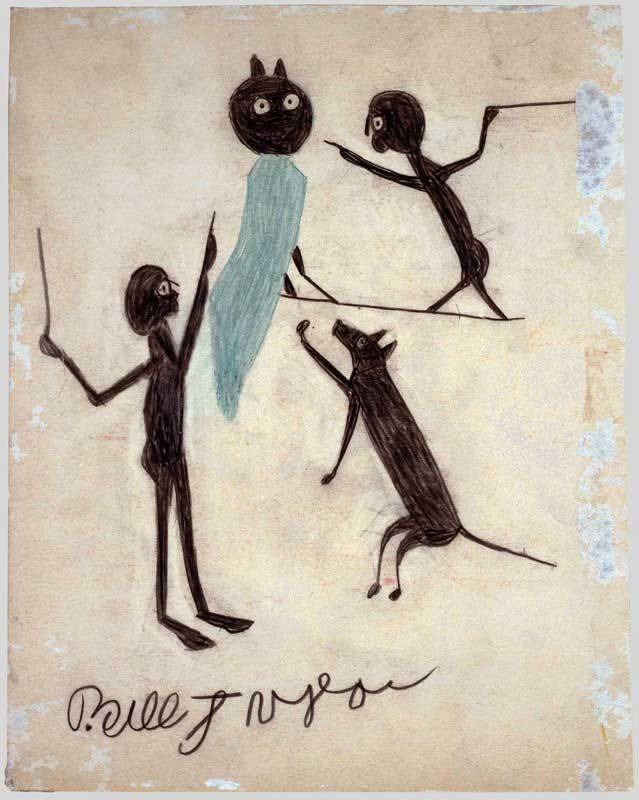 Bill Traylor